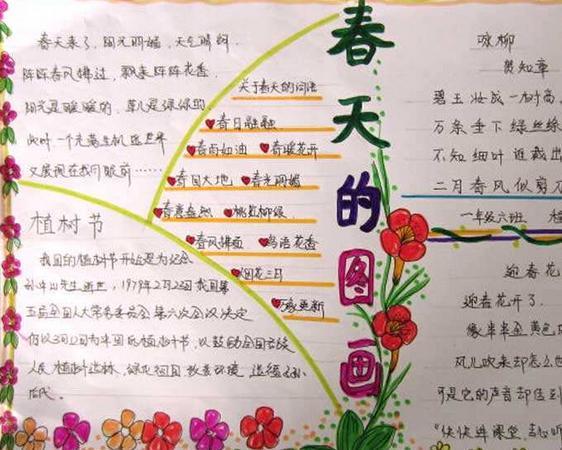 春天来了，阳光明媚，天气晴朗，
阵阵春风拂过，飘来阵阵花香，
阳光是暖暖的，草儿是绿绿的，
此时一个充满生机的世界
又展现在我们眼前……
植树节
我国的植树节开始是为纪念
孙中山先生逝世，1979年2月23日我国第
五届全国人大常务委员会第六次会议决定
仍以3月12日为中国的植树节，以鼓励全国各族
人民植树造林，绿化祖国
关于春天的词语
春日融融
春雨如油 春暖花开
春回大地 春光明媚
春意盎然 桃红柳绿
春风拂面 鸟语花香
烟花三月
万象更新
春天的图画
咏柳
贺知章
碧玉妆成一树高
万条垂下绿丝绦
不知细叶谁裁出
二月春风似剪刀
一年级六班
迎春花
迎春花开了
像半半金黄色
风儿吹来却怎么也
可是它的声音却传到
“快快进课堂，